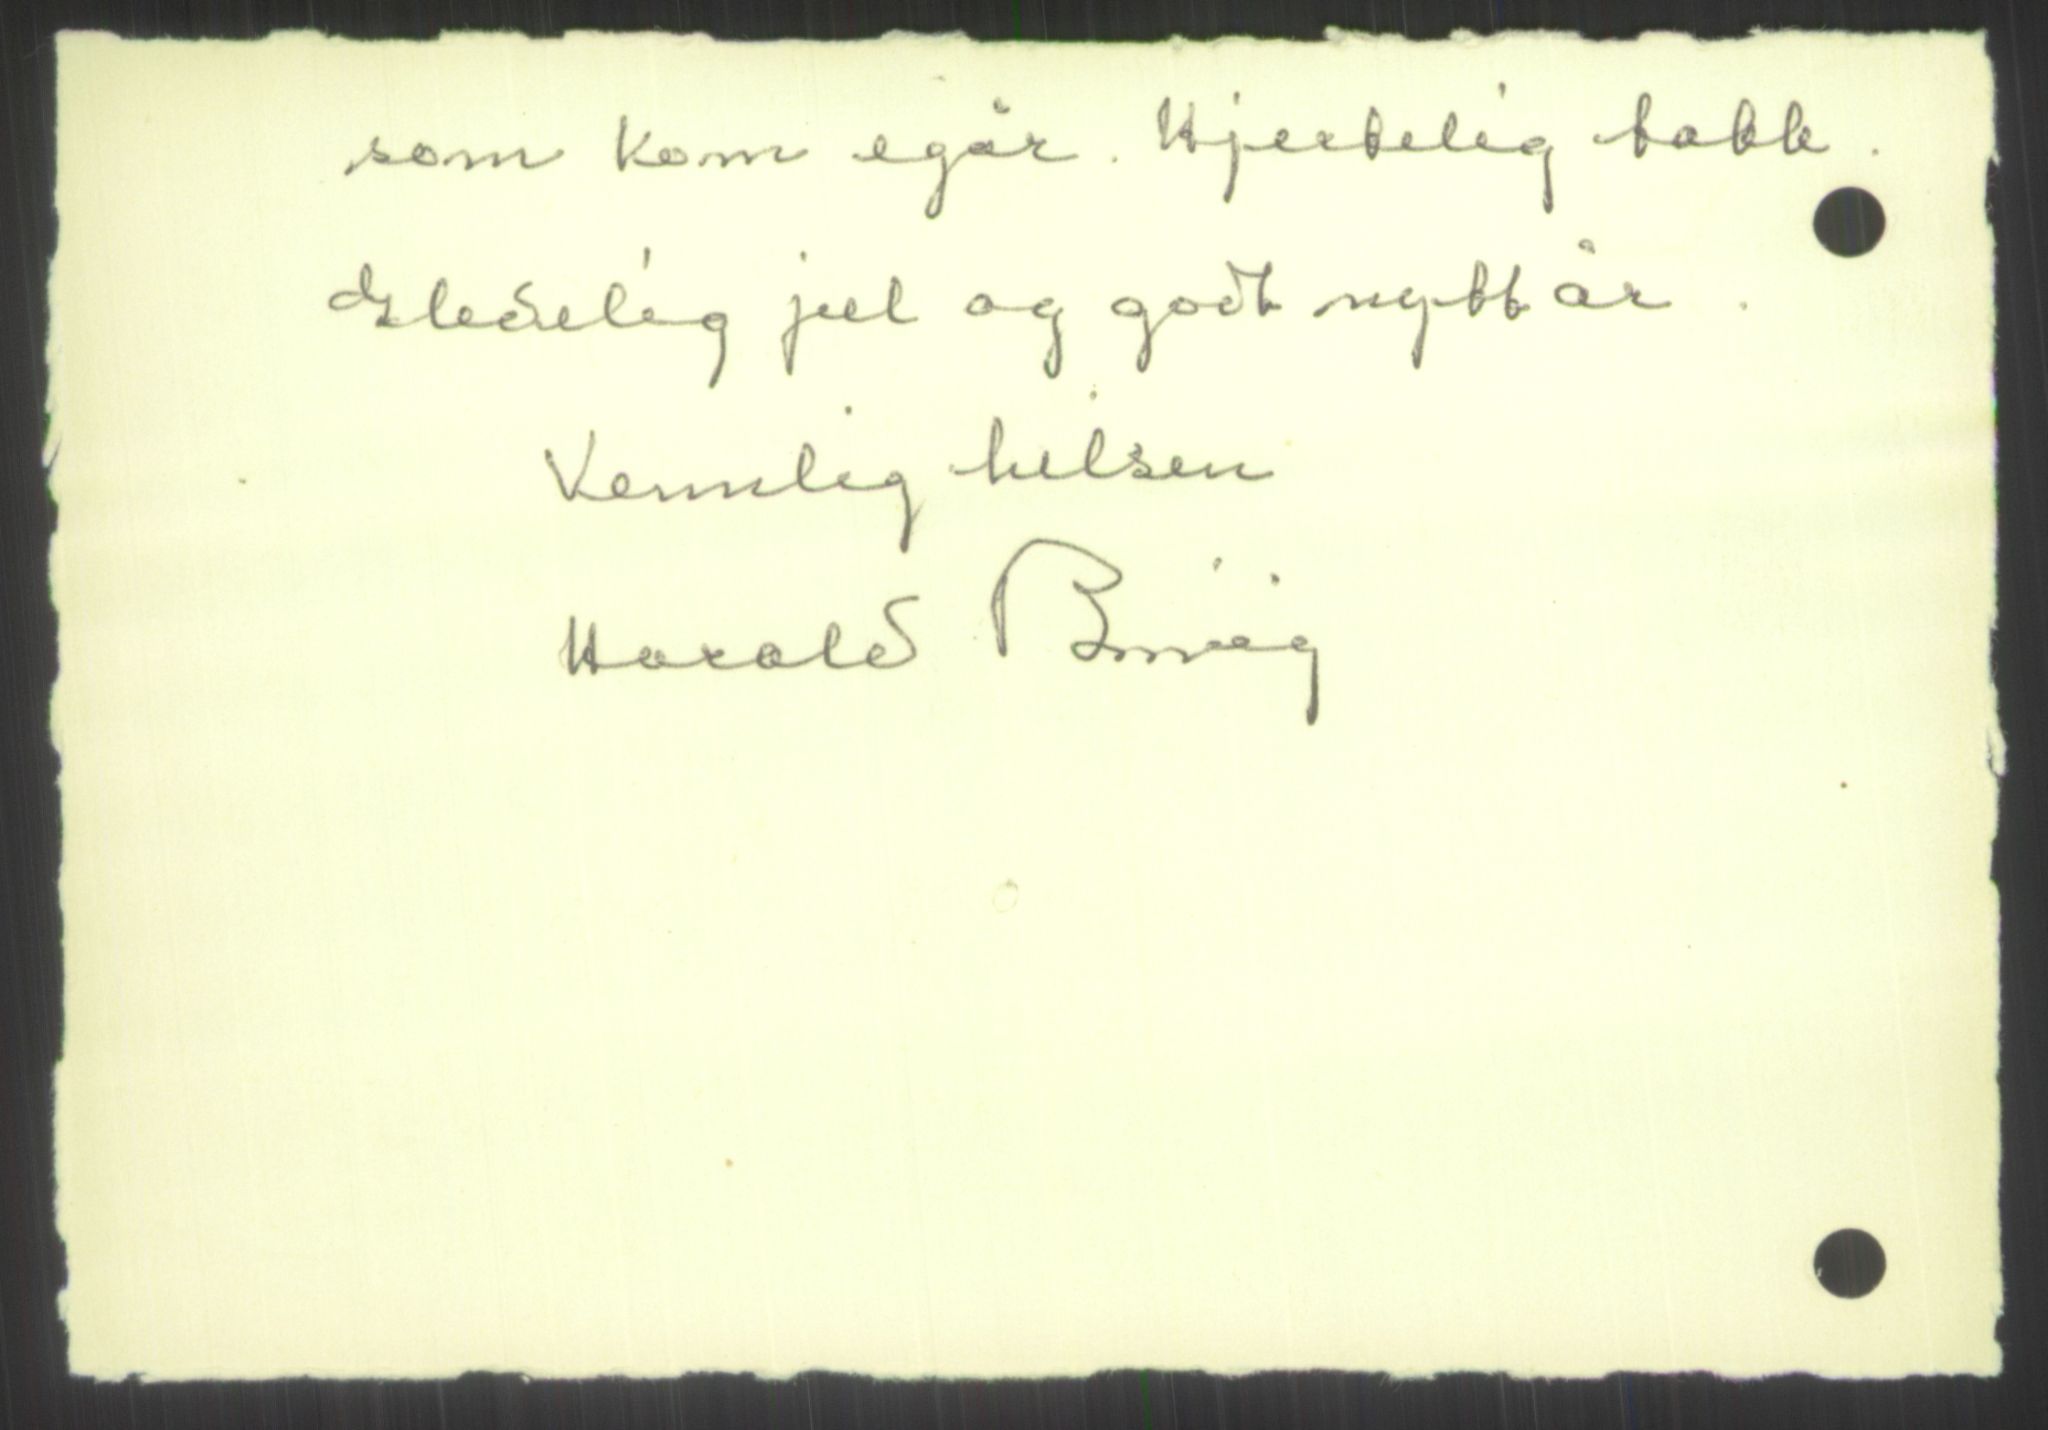 som kom egår. Hjertelig takk.
Gledelig jul og godt nytt år.
Vennlig hilsen
Harald